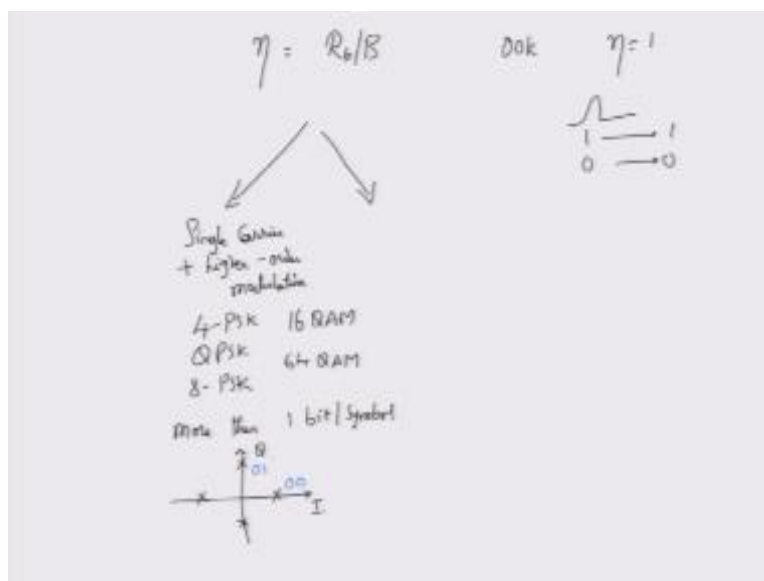 η = R_b/B OOK η=1
1 → 1
0 → 0
Single Carrier
+ higher-order
modulation
4-PSK 16 QAM
QPSK 64 QAM
8-PSK
more than 1 bit/Symbol
Q
01
00
I